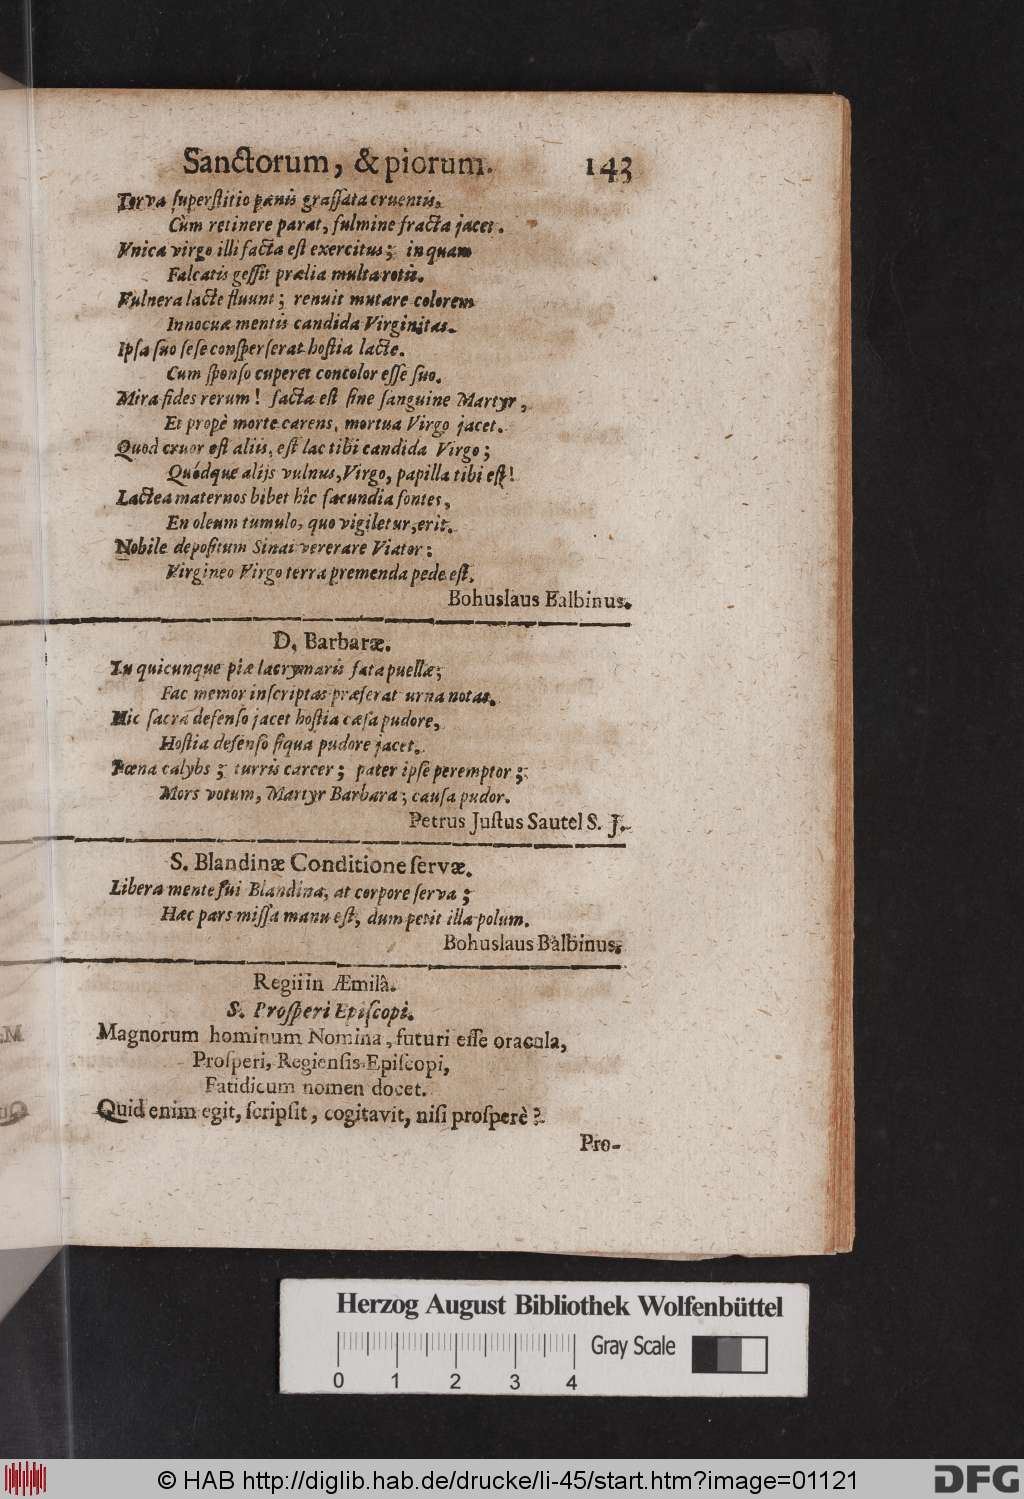 Sanctorum, & piorum. 143
Torva superstitio pænis grassata cruentis,
Cùm retinere parat, fulmine fracta jacet.
Vnica virgo illi facta est exercitus; in quam
Falcatis gessit prælia multa rotis.
Vulnera lacte fluunt; renuit mutare colorem
Innocuæ mentis candida Virginitas.
Ipsa suo sese consperserat hostia lacte.
Cum sponso cuperet concolor esse suo.
Mira fides rerum! facta est sine sanguine Martyr,
Et propè morte carens, mortua Virgo jacet.
Quod cruor est aliis, est lac tibi candida Virgo;
Quodque alijs vulnus, Virgo, papilla tibi est!
Lactea maternos bibet hîc facundia fontes,
En oleum tumulo, quo vigiletur, erit.
Nobile depositum Sinai vererare Viator:
Virgineo Virgo terra premenda pede est.
Bohuslaus Balbinus.
D. Barbaræ.
Tu quicunque piæ lacrymaris fata puellæ;
Fac memor inscriptas præferat urna notas.
Hic sacra defenso jacet hostia cæsa pudore,
Hostia defenso siqua pudore jacet.
Pœna calybs; turris carcer; pater ipse peremptor;
Mors votum, Martyr Barbara; causa pudor.
Petrus Justus Sautel S. J.
S. Blandinæ Conditione servæ.
Libera mente fui Blandina, at corpore serva;
Hæc pars missa manu est, dum petit illa polum.
Bohuslaus Balbinus.
Regii in Æmiliâ.
S. Prosperi Episcopi.
Magnorum hominum Nomina, futuri esse oracula,
Prosperi, Regiensis Episcopi,
Fatidicum nomen docet.
Quid enim egit, scripsit, cogitavit, nisi prosperè?
Pro-
Herzog August Bibliothek Wolfenbüttel
Gray Scale
0 1 2 3 4
© HAB http://diglib.hab.de/drucke/li-45/start.htm?image=01121
DFG